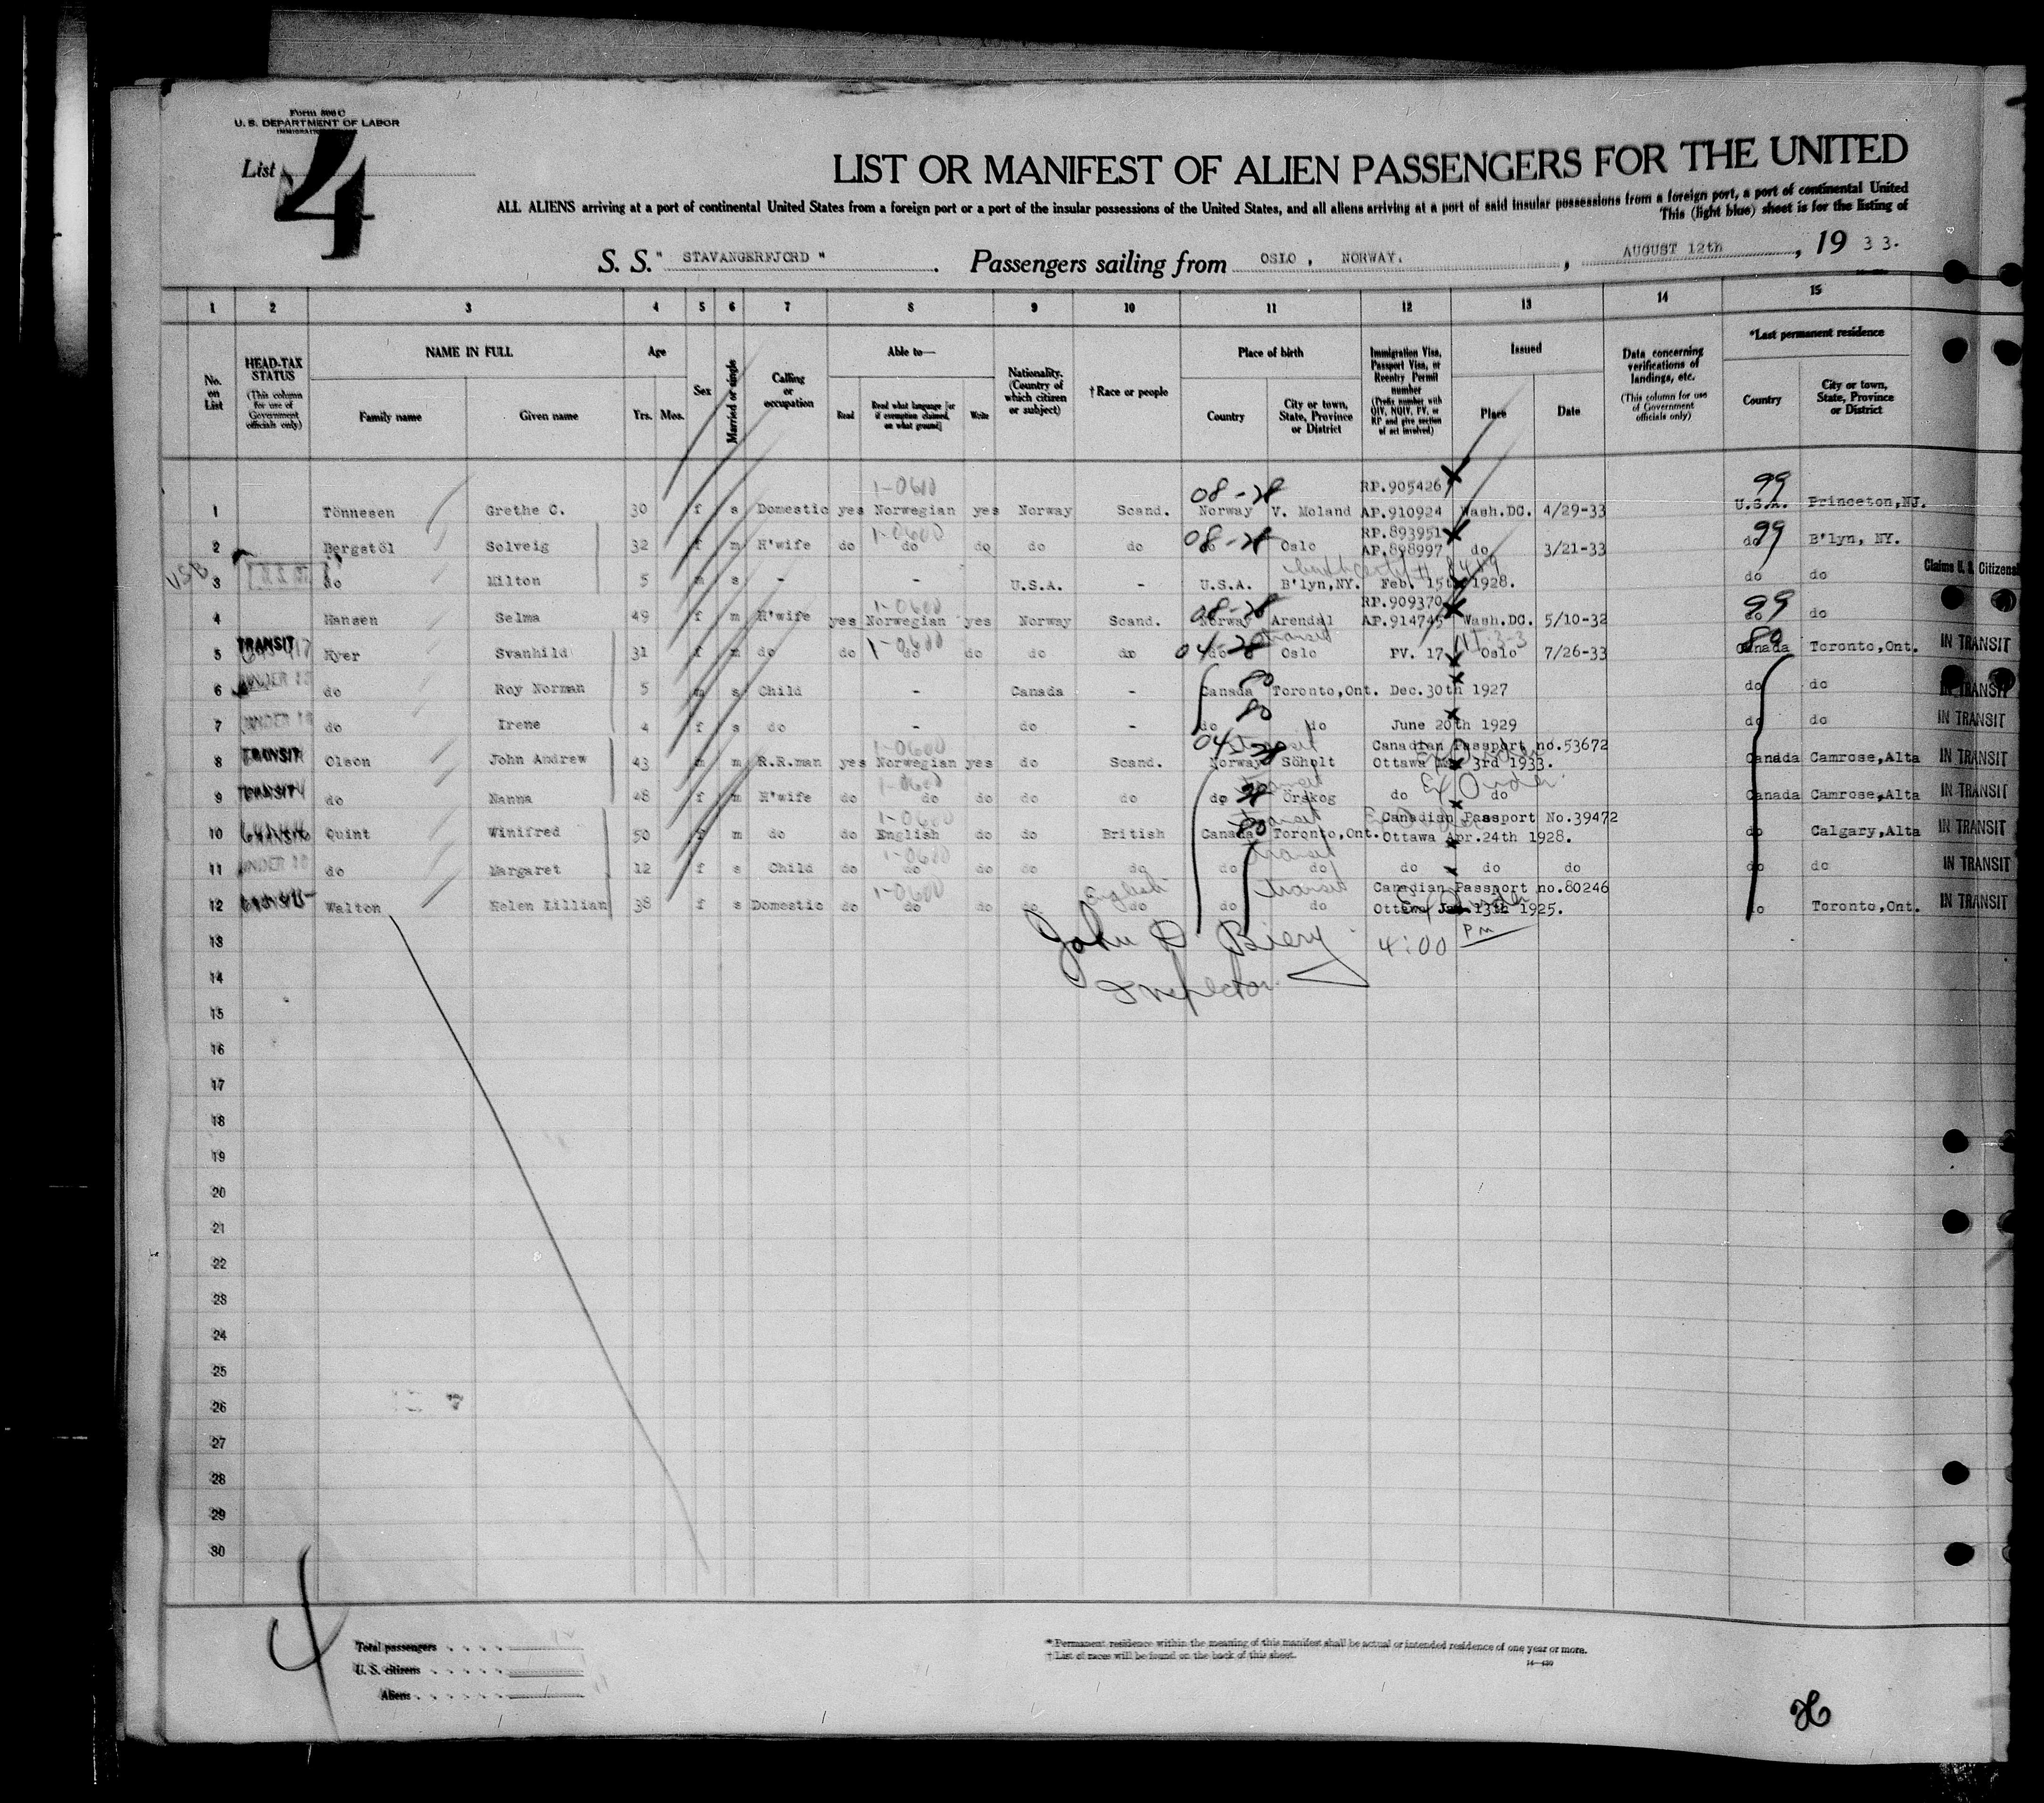 Form 500 C
U. S. DEPARTMENT OF LABOR
List 4
LIST OR MANIFEST OF ALIEN PASSENGERS FOR THE UNITED
ALL ALIENS arriving at a port of continental United States from a foreign port or a port of the insular possessions of the United States, and all aliens arriving at a port of said insular possessions from a foreign port, a port of continental United
This (light blue) sheet is for the listing of
S. S. " STAVANGERFJORD " . Passengers sailing from OSLO , NORWAY. , AUGUST 12th , 19 3 3.
1 2 3 4 5 6 7 8 9 10 11 12 13 14 15
No. on List
HEAD-TAX STATUS (This column for use of Government officials only)
NAME IN FULL
Family name Given name
Age
Yrs. Mos.
Sex
Married or single
Calling or occupation
Able to—
Read Read what language [or if exemption claimed, on what ground] Write
Nationality. (Country of which citizen or subject)
† Race or people
Place of birth
Country City or town, State, Province or District
Immigration Visa, Passport Visa, or Reentry Permit number (Prefix number with QIV, NQIV, PV, or RP and give section of act involved)
Issued
Place Date
Data concerning verifications of landings, etc. (This column for use of Government officials only)
*Last permanent residence
Country City or town, State, Province or District
1-0600 08-28 RP.905426 99
1 Tönnesen Grethe C. 30 f s Domestic yes Norwegian yes Norway Scand. Norway V. Moland AP.910924 Wash.DC. 4/29-33 U.S.A. Princeton,NJ.
1-0600 08-28 RP.893951 99
2 Bergstöl Solveig 32 f m H'wife do do do do do do Oslo AP.898997 do 3/21-33 do B'lyn, NY.
USB
3 do Milton 5 m s - - U.S.A. - U.S.A. B'lyn,NY. Feb. 15th 1928. do do Claims U. S. Citizens
1-0600 08-28 RP.909370 99
4 Hansen Selma 49 f m H'wife yes Norwegian yes Norway Scand. Norway Arendal AP.914745 Wash.DC. 5/10-32 do do
TRANSIT 1-0600 04-28 transit 3-3 80
5 Hyer Svanhild 31 f m do do do do do do do Oslo PV. 17 Oslo 7/26-33 Canada Toronto,Ont. IN TRANSIT
UNDER 16 80
6 do Roy Norman 5 m s Child - Canada - Canada Toronto,Ont. Dec.30th 1927 do do IN TRANSIT
UNDER 16 80
7 do Irene 4 f s do - do - do do June 20th 1929 do do IN TRANSIT
TRANSIT 1-0600 04-28 transit Canadian Passport no.53672
8 Olson John Andrew 43 m m R.R.man yes Norwegian yes do Scand. Norway Söholt Ottawa 3rd 1933. Canada Camrose,Alta IN TRANSIT
TRANSIT 1-0600 28 transit Ex Order
9 do Nanna 48 f m H'wife do do do do do do Örskog do do Canada Camrose,Alta IN TRANSIT
TRANSIT 1-0600 80 transit Canadian Passport No.39472
10 Quint Winifred 50 f m do do English do do British Canada Toronto,Ont. Ottawa Apr.24th 1928. do Calgary,Alta IN TRANSIT
UNDER 16 1-0600 transit
11 do Margaret 12 f s Child do do do do do do do do do do do do IN TRANSIT
1-0600 English transit Canadian Passport no.80246
12 Walton Helen Lillian 38 f s Domestic do do do do do do do Ottawa Jan 13th 1925. do Toronto,Ont. IN TRANSIT
13 John Biery 4:00 PM
14 Inspector
15
16
17
18
19
20
21
22
23
24
25
26
27
28
29
30
4
Total passengers
U. S. citizens
Aliens
* Permanent residence within the meaning of this manifest shall be actual or intended residence of one year or more.
† List of races will be found on the back of this sheet.